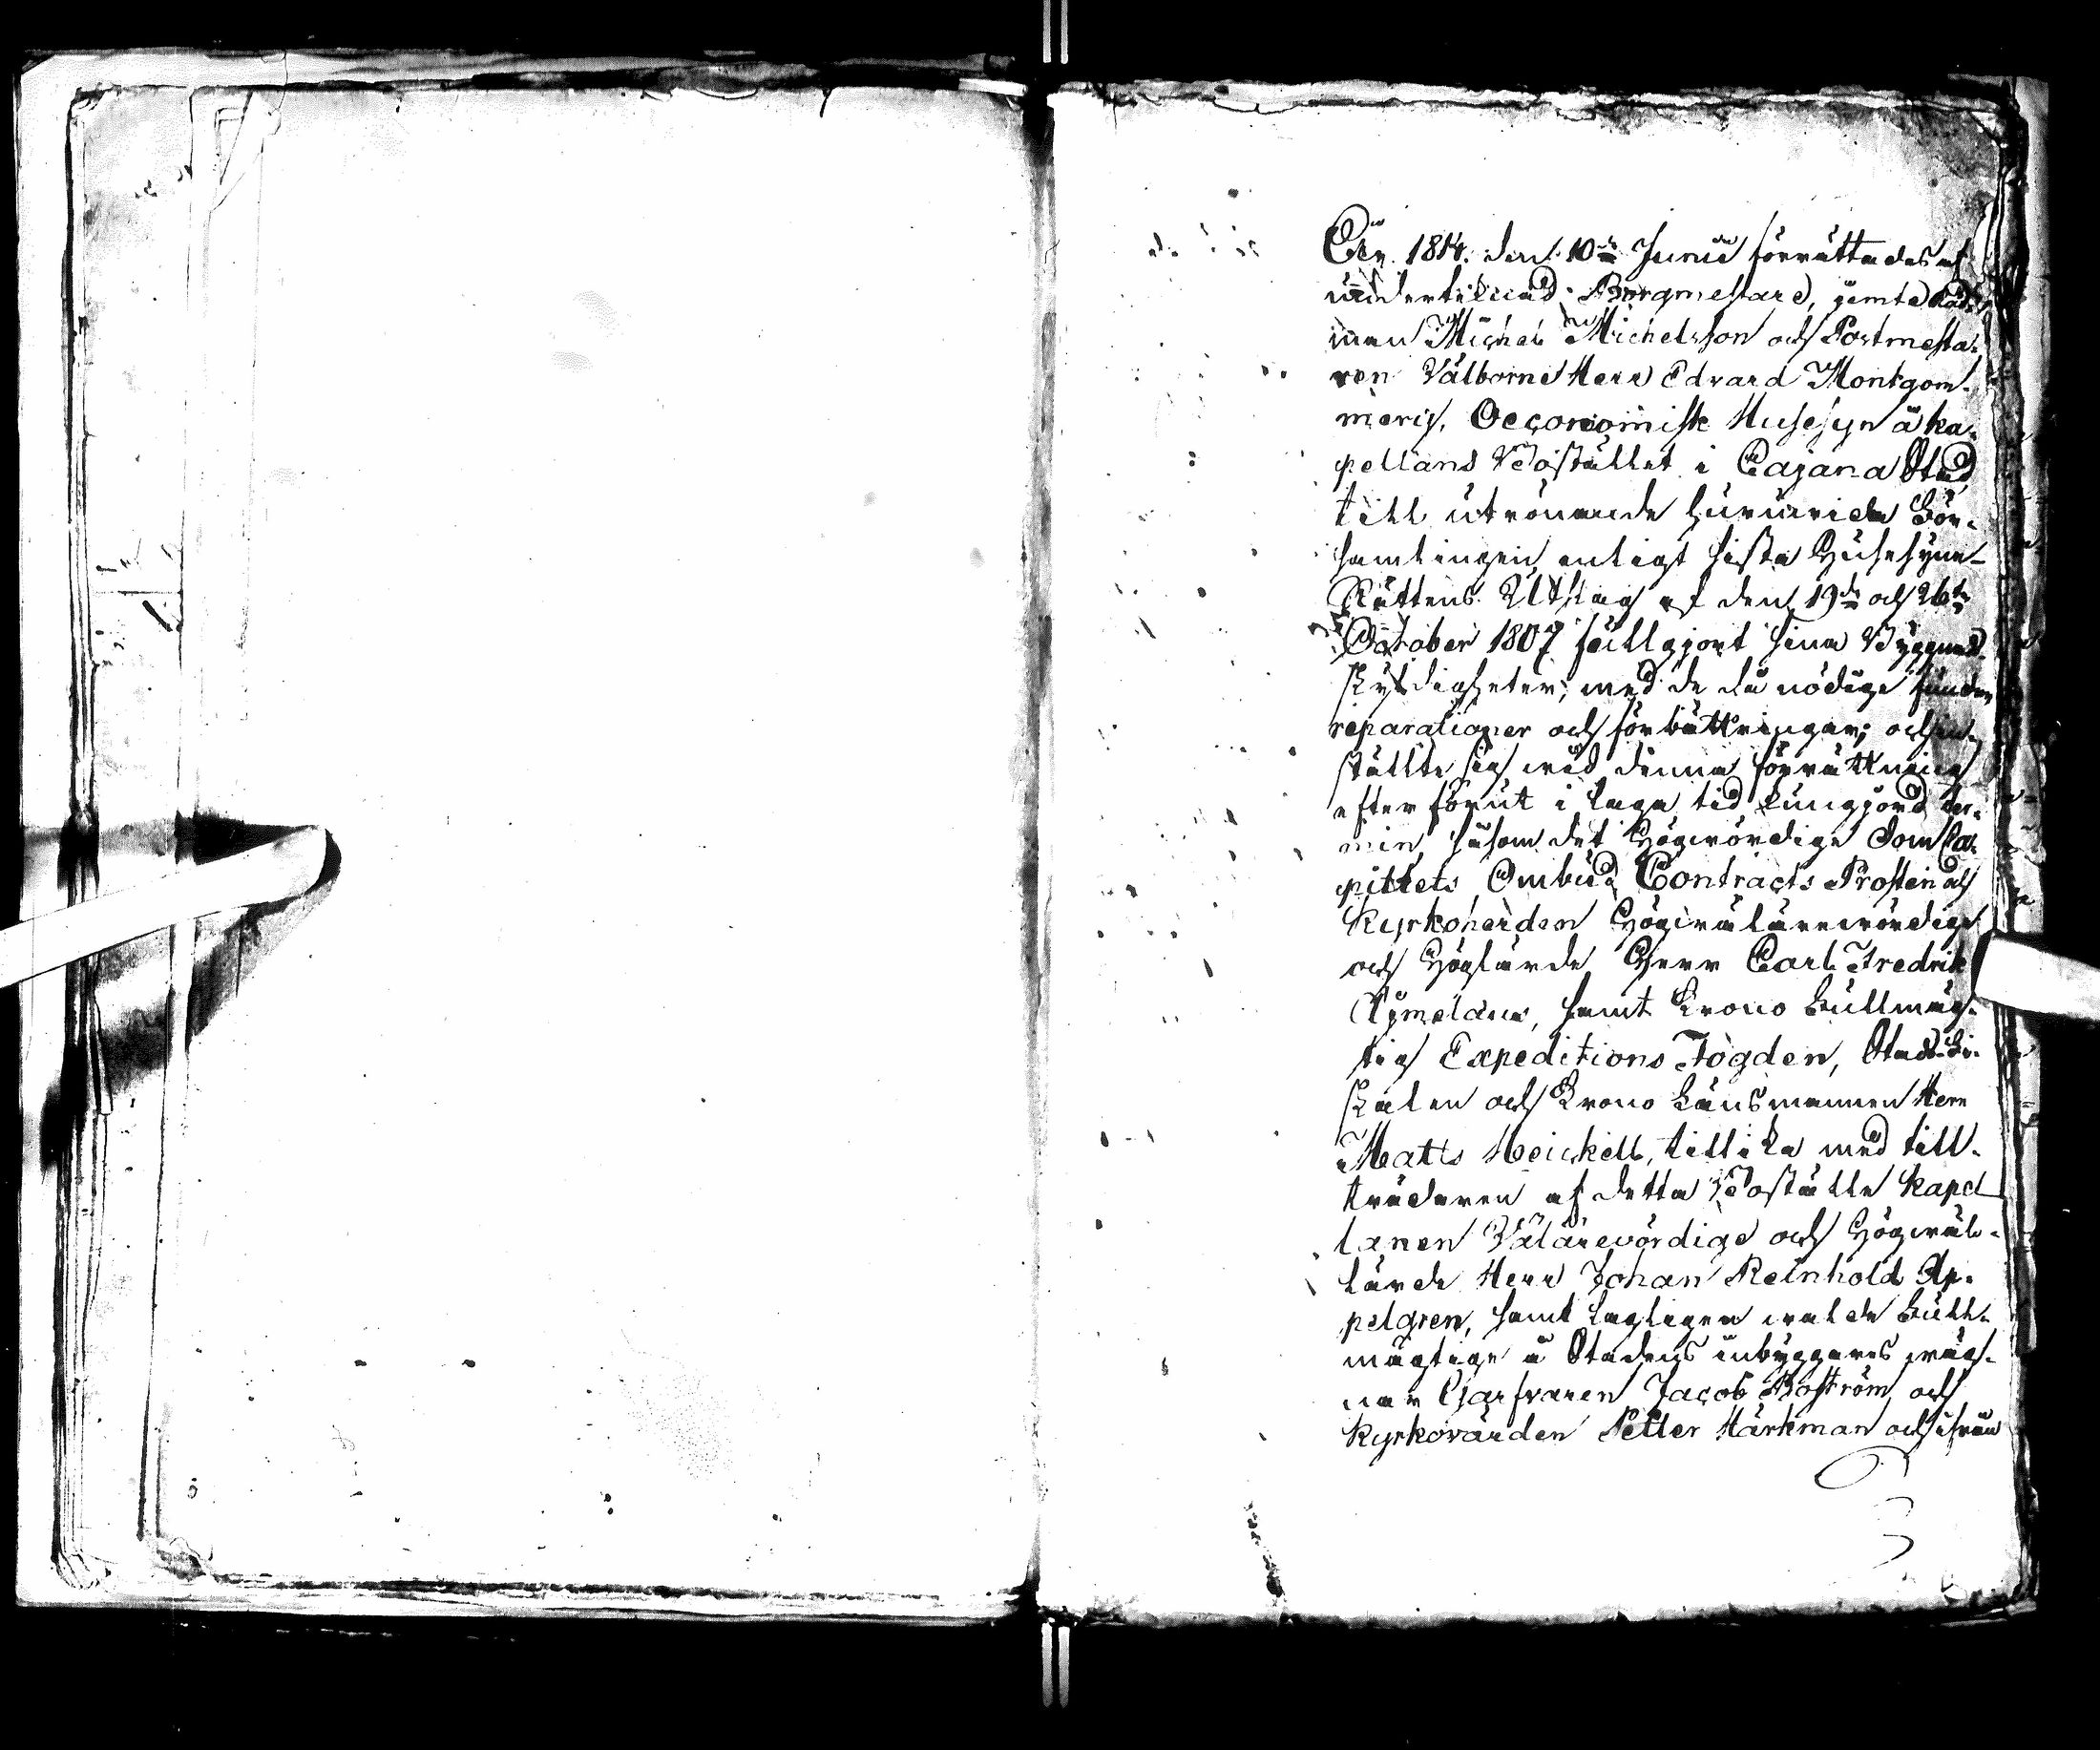 År 1814. den 10de Junii förrättades af
undertecknad Borgmestare, jemte Råd-
man Michel Michelsson och Postmesta-
ren Välborne Herr Edvard Montgom-
merij, Oeconomisk Husesyn å ka-
pellans Bostället i Cajana Stad
till utrönande huruvida För-
samlingen enligt sista Husesyne-
Rättens Utslag af den 19de och 26te
October 1807 fullgjort sina Byggnads-
skyldigheter, med de då nödige fundne
reparationer och förbättringar; och in-
stälte sig wid denna förrättning
efter förut i laga tid kungjord ter-
min, såsom det Högwördige DomCa-
pitlets Ombud Contracts Prosten och
Kyrkoherden Högwälärewördige
och Höglärde Herr Carl Fredrik
Nymelaus, samt Krono Fullmäg-
tig Expeditions Fogden, Stads-Fi-
skalen och Krono Länsmannen Herr
Matts Heickell, tillika med till-
träderen af detta Boställe kapel
lanen Välärevördige och Högwäl-
lärde Herr Johan Reinhold Ap-
pelgren, samt lagligen walde Full-
mägtige å Stadens inbyggares wäg-
nar Garfvaren Jacob Boström och
kyrkovärden Petter Härkman och ifrån